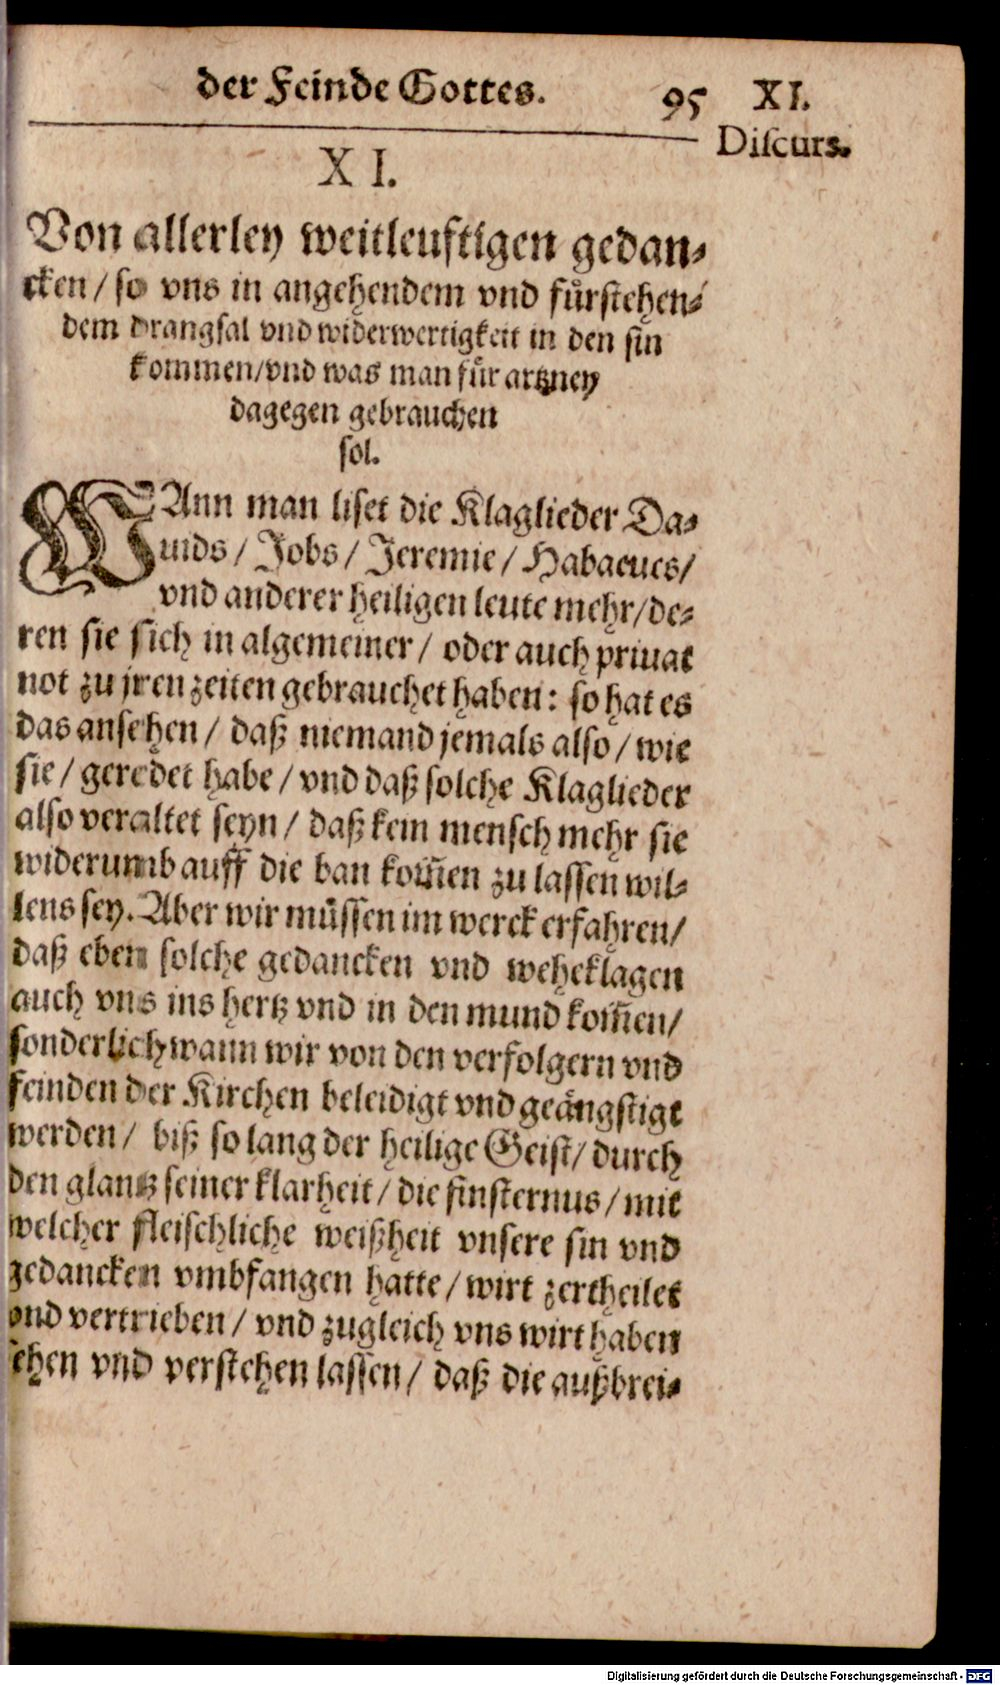 der Feinde Gottes. 95 XI.
Discurs.
XI.
Von allerley weitleuftigen gedan-
cken / so vns in angehendem vnd fürstehen-
dem drangsal vnd widerwertigkeit in den sin
kommen/vnd was man für artzney
dagegen gebrauchen
sol.
WAnn man liset die Klaglieder Da-
uids / Jobs / Jeremie / Habacucs/
vnd anderer heiligen leute mehr/de-
ren sie sich in algemeiner / oder auch priuat
not zu jren zeiten gebrauchet haben: so hat es
das ansehen / daß niemand jemals also / wie
sie / geredet habe / vnd daß solche Klaglieder
also veraltet seyn / daß kein mensch mehr sie
widerumb auff die ban kom̃en zu lassen wil-
lens sey. Aber wir müssen im werck erfahren/
daß eben solche gedancken vnd weheklagen
auch vns ins hertz vnd in den mund kom̃en/
sonderlich wann wir von den verfolgern vnd
feinden der Kirchen beleidigt vnd geängstigt
werden / biß so lang der heilige Geist/ durch
den glantz seiner klarheit / die finsternus / mit
welcher fleischliche weißheit vnsere sin vnd
gedancken vmbfangen hatte / wirt zertheilet
vnd vertrieben / vnd zugleich vns wirt haben
sehen vnd verstehen lassen / daß die außbrei-
Digitalisierung gefördert durch die Deutsche Forschungsgemeinschaft - DFG